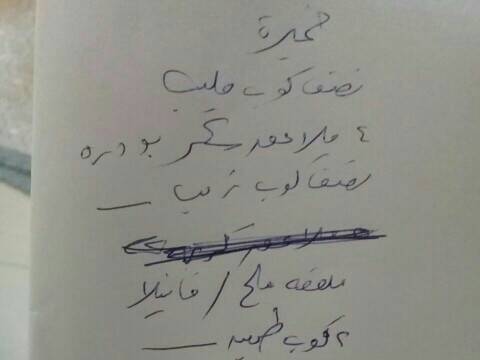 خميرة
نصف كوب حليب
٤ ملاعق سكر بودره
نصف كوب زيت
ملعقه ملح / فانيلا
٢ كوب طحين